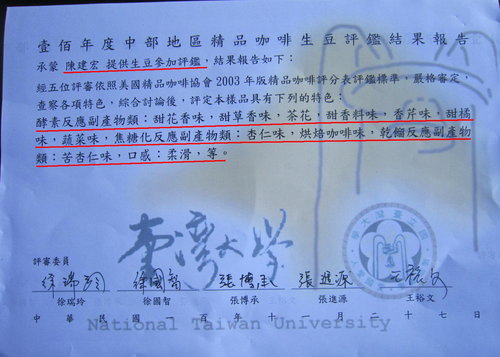 壹佰年度中部地區精品咖啡生豆評鑑結果報告
承蒙 陳建宏 提供生豆參加評鑑,結果報告如下:
經五位評審依照美國精品咖啡協會 2003 年版精品咖啡評分表評鑑標準,嚴格審定,
查察各項特色,綜合討論後,評定本樣品具有下列的特色:
酵素反應副產物類:甜花香味,甜草香味,茶花,甜香料味,香芹味,甜橘
味,蔬菜味,焦糖化反應副產物類:杏仁味,烘焙咖啡味,乾餾反應副產物
類:苦杏仁味,口感:柔滑,等。
臺灣大學
評審委員
徐瑞玲 徐國智 張博承 張進源 王裕文
徐瑞玲 徐國智 張博承 張進源 王裕文
中華民國一百年十一月二十七日
National Taiwan University